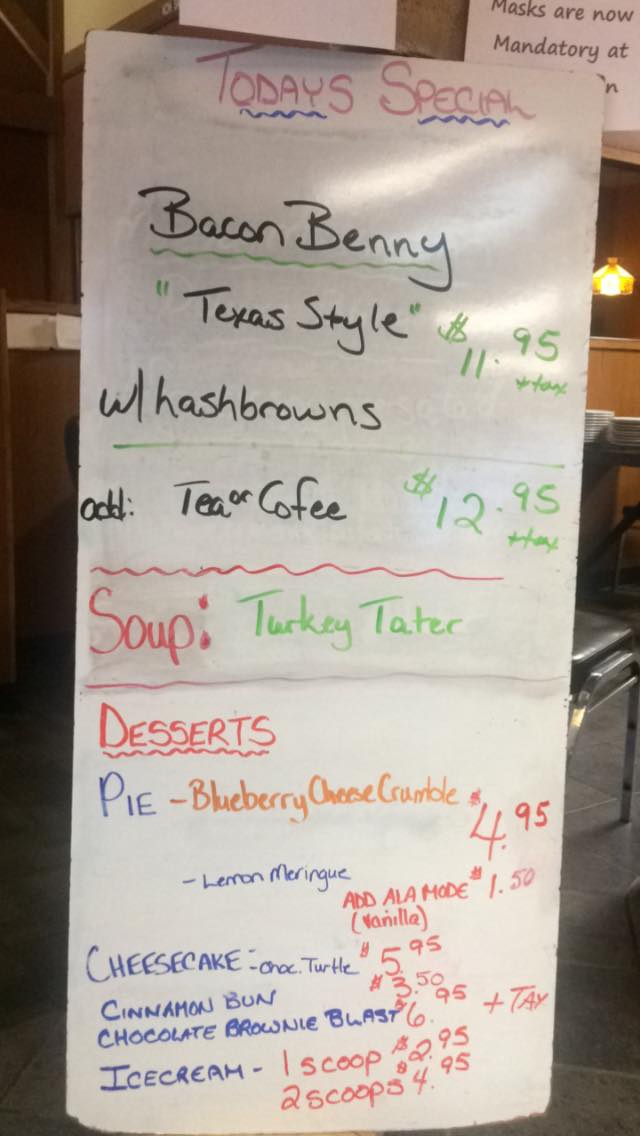 Masks are now
Mandatory at
TODAYS SPECIAL
Bacon Benny
"Texas Style" $11.95
+tax
w/hashbrowns
add: Tea or Cofee $12.95
+tax
Soup: Turkey Tater
DESSERTS
PIE - Blueberry Cheese Crumble $4.95
- Lemon Meringue
ADD ALA MODE $1.50
(Vanilla)
CHEESECAKE - Choc. Turtle $5.95
CINNAMON BUN $3.50
CHOCOLATE BROWNIE BLAST $6.95 + TAX
ICECREAM - 1 scoop $2.95
2 scoops $4.95